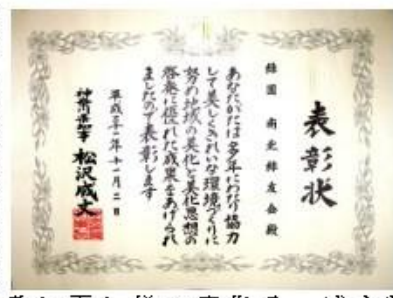 表彰状
緑園 南北緑友会殿
あなたがたは多年にわたり協力
して美しくきれいな環境づくりに
努め地域の美化と美化思想の
啓発に優れた成果をあげられ
ましたので表彰します
平成二十一年十一月二日
神奈川県知事 松沢成文